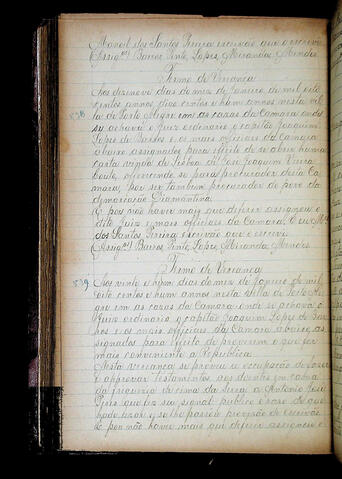 Manoel dos Santos Pereira escrivão que o escrevi
Assigdos Barros, Pinto, Lopes, Miranda, Mendes
Termo de Vereança
538
Aos desenove dias do mez de Janeiro de mil oito
centos annos digo centos e hum annos nesta vil
la de Porto Alegre em as cazas da Camara onde
se achava o Juiz ordinario o capitão Joaquim
Lopes de Barros e os mais officiaes da Camara
abaixo assignados para effeito de se abrir huma
carta vinda de Lisboa de José Joaquim Vieira
Couto, offerecendo se para procurador desta Ca
mara, por ser tambem procurador do povo da
demarcação Diamantina.
E por não haver mais que deferir assignou o
dito Juiz e mais officiaes da Camara. E eu M.
dos Santos Pereira escrivão que o escrevi
Assigdos Barros, Pinto, Lopes, Miranda, Mendes
Termo de Vereança
539
Aos vinte e hum dias do mez de Janeiro de mil
oito centos e hum annos nesta Villa de Porto Ale
gre em as cazas da Camara onde se achava o
Juiz ordinario o capitão Joaquim Lopes de Bar
ros e os mais officiaes da Camara abaixo as
signados para effeito de proverem o que for
mais conveniente a Republica.
Nesta vereança se proveu a occupação de fazer
e approvar testamentos aos doentes em cama
da freguezia de cima da Serra a Antonio José
Pires que fez seu signal publico e raso de que
hade uzar e se lhe passou provisão de escrivão
E por não haver mais que deferir assignou o